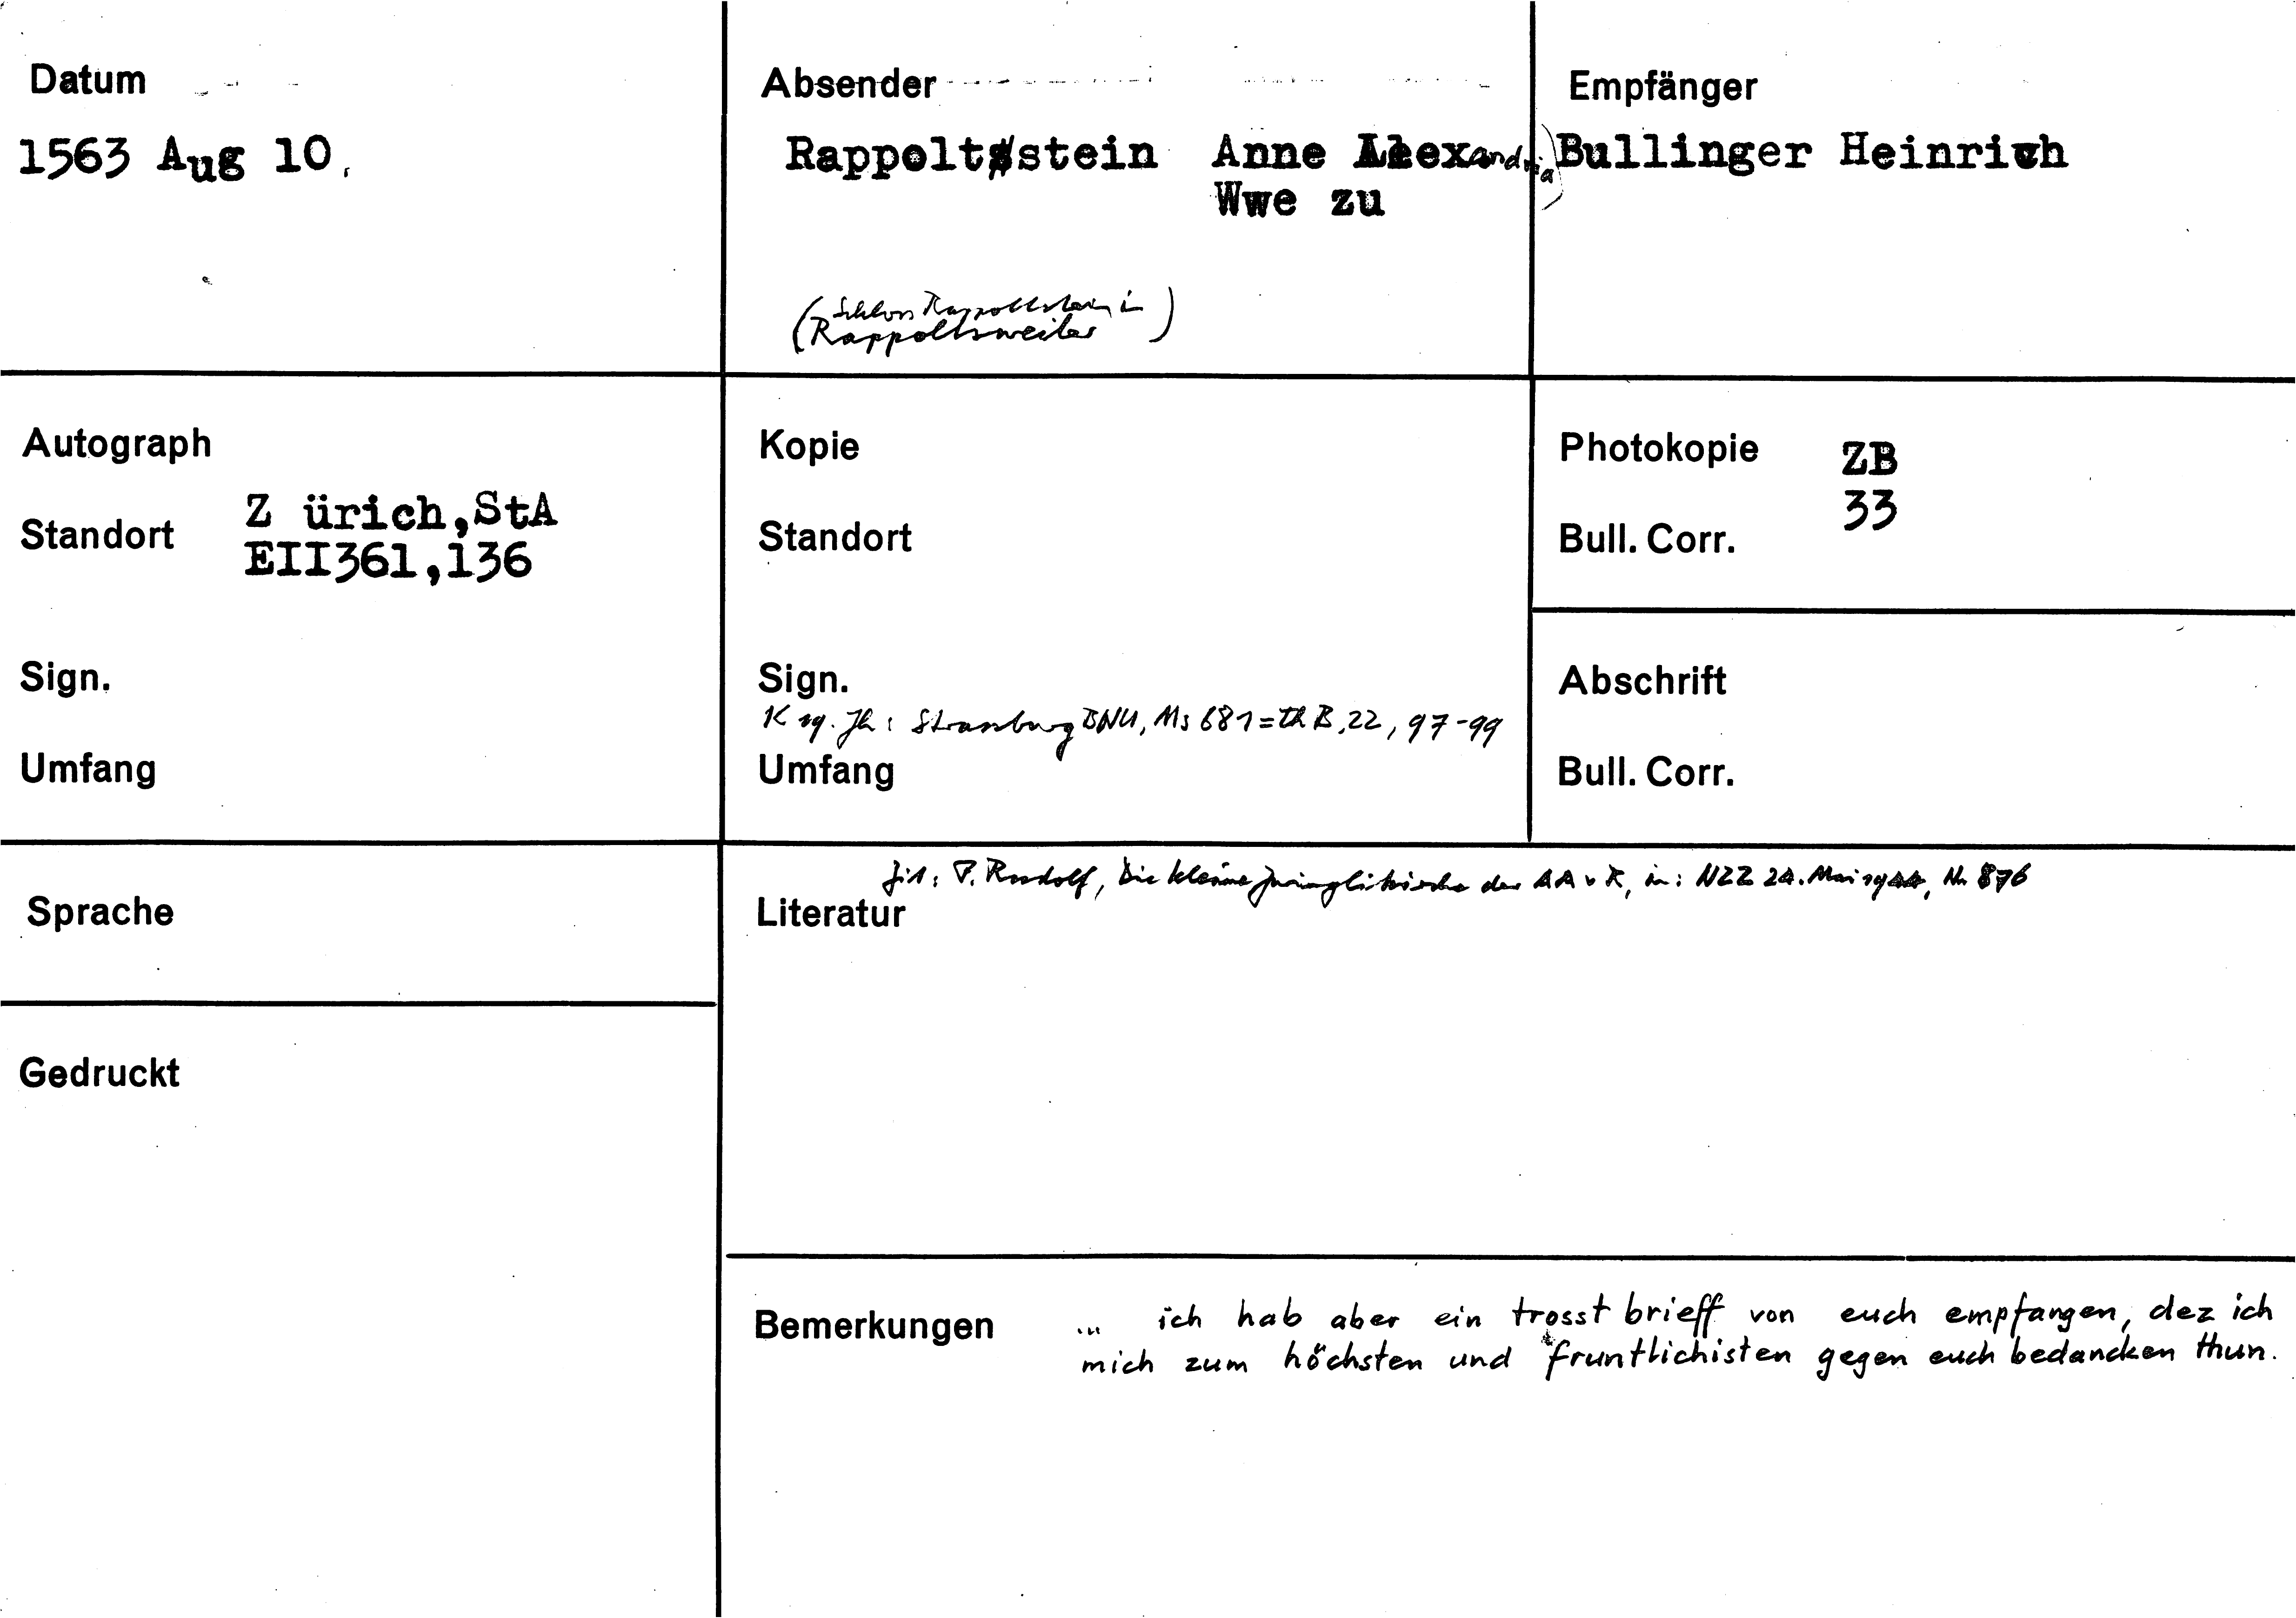 Datum
1563 Aug 10.
Absender
Rappoltsstein Anne Alexandria
Wwe zu
(Schloss Rappoltstein in
Rappoltsweiler)
Empfänger
Bullinger Heinrich
Autograph
Standort Z ürich,StA
EII361,136
Sign.
Umfang
Kopie
Standort
Sign.
K 19. Jh: Strassburg BNU, Ms 681 = th B, 22, 97-99
Umfang
Photokopie ZB
33
Bull. Corr.
Abschrift
Bull. Corr.
Sprache
Gedruckt
Zit: P. Rudolf, Die kleine Zwinglikirche der AA v R, in: NZZ 24. Mai 1944, Nr 876
Literatur
Bemerkungen ... ich hab aber ein trosst brieff von euch empfangen, dez ich
mich zum höchsten und fruntlichisten gegen euch bedancken thun.